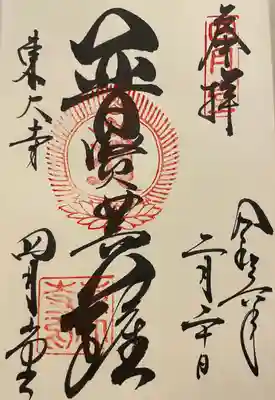 奉拝
令和六年
二月二十日
普賢菩薩
東大寺
四月堂